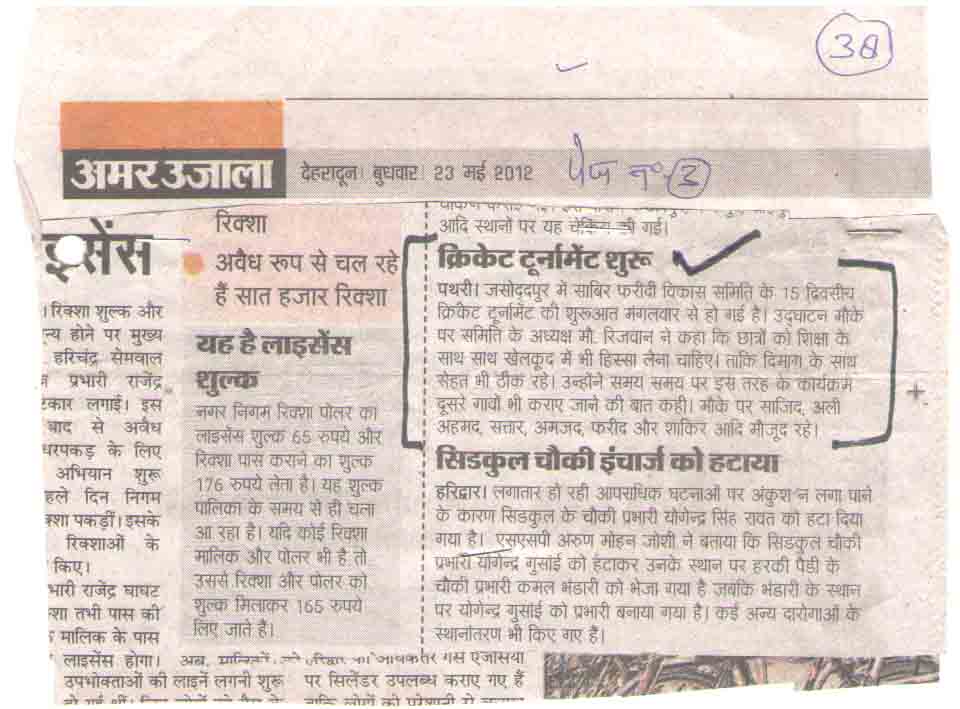 38
अमर उजाला
देहरादून। बुधवार। 23 मई 2012
पेज नं. 3
इसेंस
। रिक्शा शुल्क और
न्य होने पर मुख्य
हरिचंद्र सेमवाल
प्रभारी राजेंद्र
टकार लगाई। इस
बाद से अवैध
धरपकड़ के लिए
अभियान शुरू
हले दिन निगम
क्शा पकड़ीं। इसके
रिक्शाओं के
किए।
भारी राजेंद्र घाघट
शा तभी पास की
मालिक के पास
लाइसेंस होगा।
उपभोक्ताओं की लाइनें लगनी शुरू
रिक्शा
अवैध रूप से चल रहे
हैं सात हजार रिक्शा
यह है लाइसेंस
शुल्क
नगर निगम रिक्शा पोलर का
लाइसेंस शुल्क 65 रुपये और
रिक्शा पास कराने का शुल्क
176 रुपये लेता है। यह शुल्क
पालिका के समय से ही चला
आ रहा है। यदि कोई रिक्शा
मालिक और पोलर भी है तो
उससे रिक्शा और पोलर को
शुल्क मिलाकर 165 रुपये
लिए जाते हैं।
आदि स्थानों पर यह चेकिंग की गई।
क्रिकेट टूर्नामेंट शुरू
पथरी। जसोद्दपुर में साबिर फरीदी विकास समिति के 15 दिवसीय
क्रिकेट टूर्नामेंट की शुरूआत मंगलवार से हो गई है। उद्घाटन मौके
पर समिति के अध्यक्ष मौ. रिजवान ने कहा कि छात्रों को शिक्षा के
साथ साथ खेलकूद में भी हिस्सा लेना चाहिए। ताकि दिमाग के साथ
सेहत भी ठीक रहे। उन्होंने समय समय पर इस तरह के कार्यक्रम
दूसरे गावों भी कराए जाने की बात कही। मौके पर साजिद, अली
अहमद, सत्तार, अमजद, फरीद और शाकिर आदि मौजूद रहे।
सिडकुल चौकी इंचार्ज को हटाया
हरिद्वार। लगातार हो रही आपराधिक घटनाओं पर अंकुश न लगा पाने
के कारण सिडकुल के चौकी प्रभारी योगेन्द्र सिंह रावत को हटा दिया
गया है। एसएसपी अरुण मोहन जोशी ने बताया कि सिडकुल चौकी
प्रभारी योगेन्द्र गुसांई को हटाकर उनके स्थान पर हरकी पैडी के
चौकी प्रभारी कमल भंडारी को भेजा गया है जबकि भंडारी के स्थान
पर योगेन्द्र गुसांई को प्रभारी बनाया गया है। कई अन्य दारोगाओं के
स्थानांतरण भी किए गए हैं।
पर सिलेंडर उपलब्ध कराए गए हैं